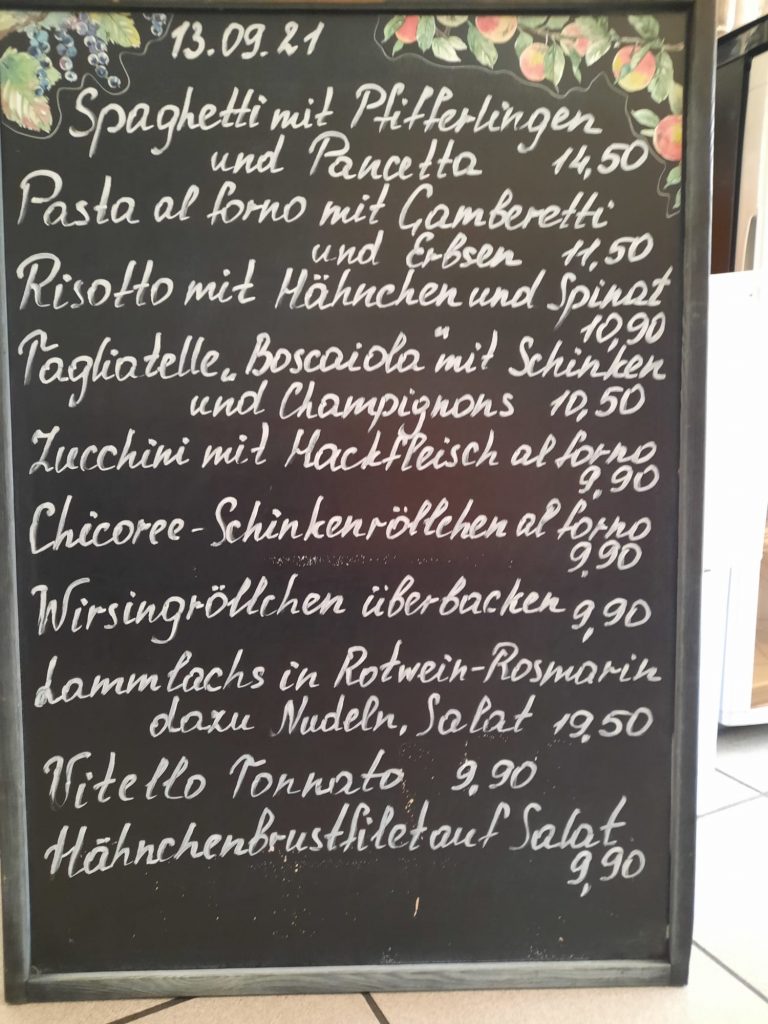 13.09.21
Spaghetti mit Pfifferlingen
und Pancetta 14,50
Pasta al forno mit Gamberetti
und Erbsen 11,50
Risotto mit Hähnchen und Spinat
10,90
Tagliatelle „Boscaiola" mit Schinken
und Champignons 10,50
Zucchini mit Hackfleisch al forno
9,90
Chicoree-Schinkenröllchen al forno
9,90
Wirsingröllchen überbacken 9,90
Lammlachs in Rotwein-Rosmarin
dazu Nudeln, Salat 19,50
Vitello Tonnato 9,90
Hähnchenbrustfilet auf Salat
9,90